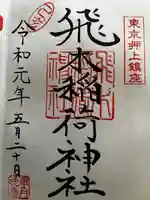 東京押上鎮座
飛木稲荷神社
令和元年五月二十日